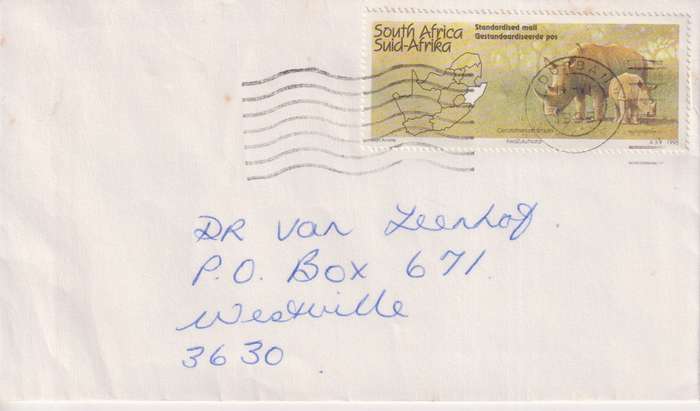 South Africa
Suid-Afrika
Standardised mail
Gestandaardiseerde pos
Ceratotherium simum
1995
DR van Leenhof
P.O. Box 671
Westville
3630